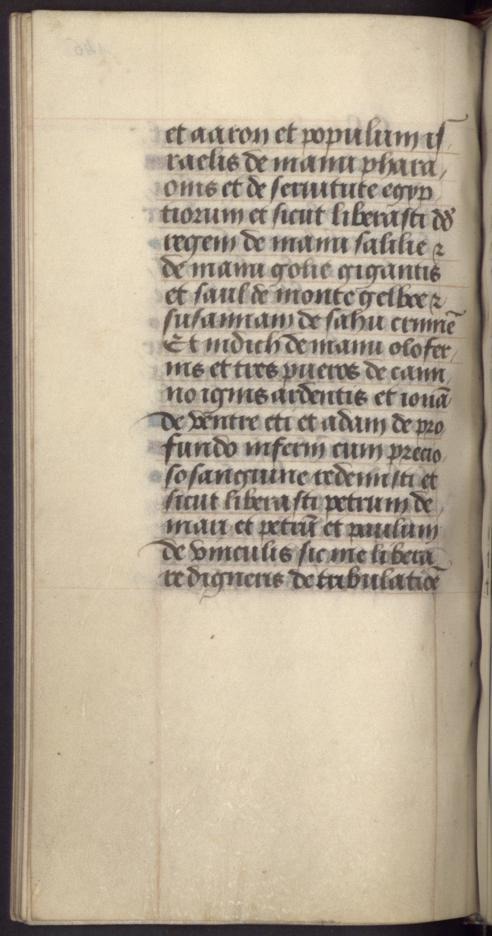 et aaron et populum is
raelis de manu phara,
onis et de seruitute egyp
tiorum et sicut liberasti dd̄
regem de manu salilie ⁊
de manu golie gigantis
et saul de monte gelboe ⁊
susannam de falsu crimīe
Et iudich de manu olofer,
nis et tres pueros de cami,
no ignis ardentis et ionā
de ventre ceti et adam de pro
fundo inferni cum precio,
so sanguine redemisti et
sicut liberasti petrum de
mari et petrū et paulum
de vinculis sic me libera
re digneris de tribulatiōe